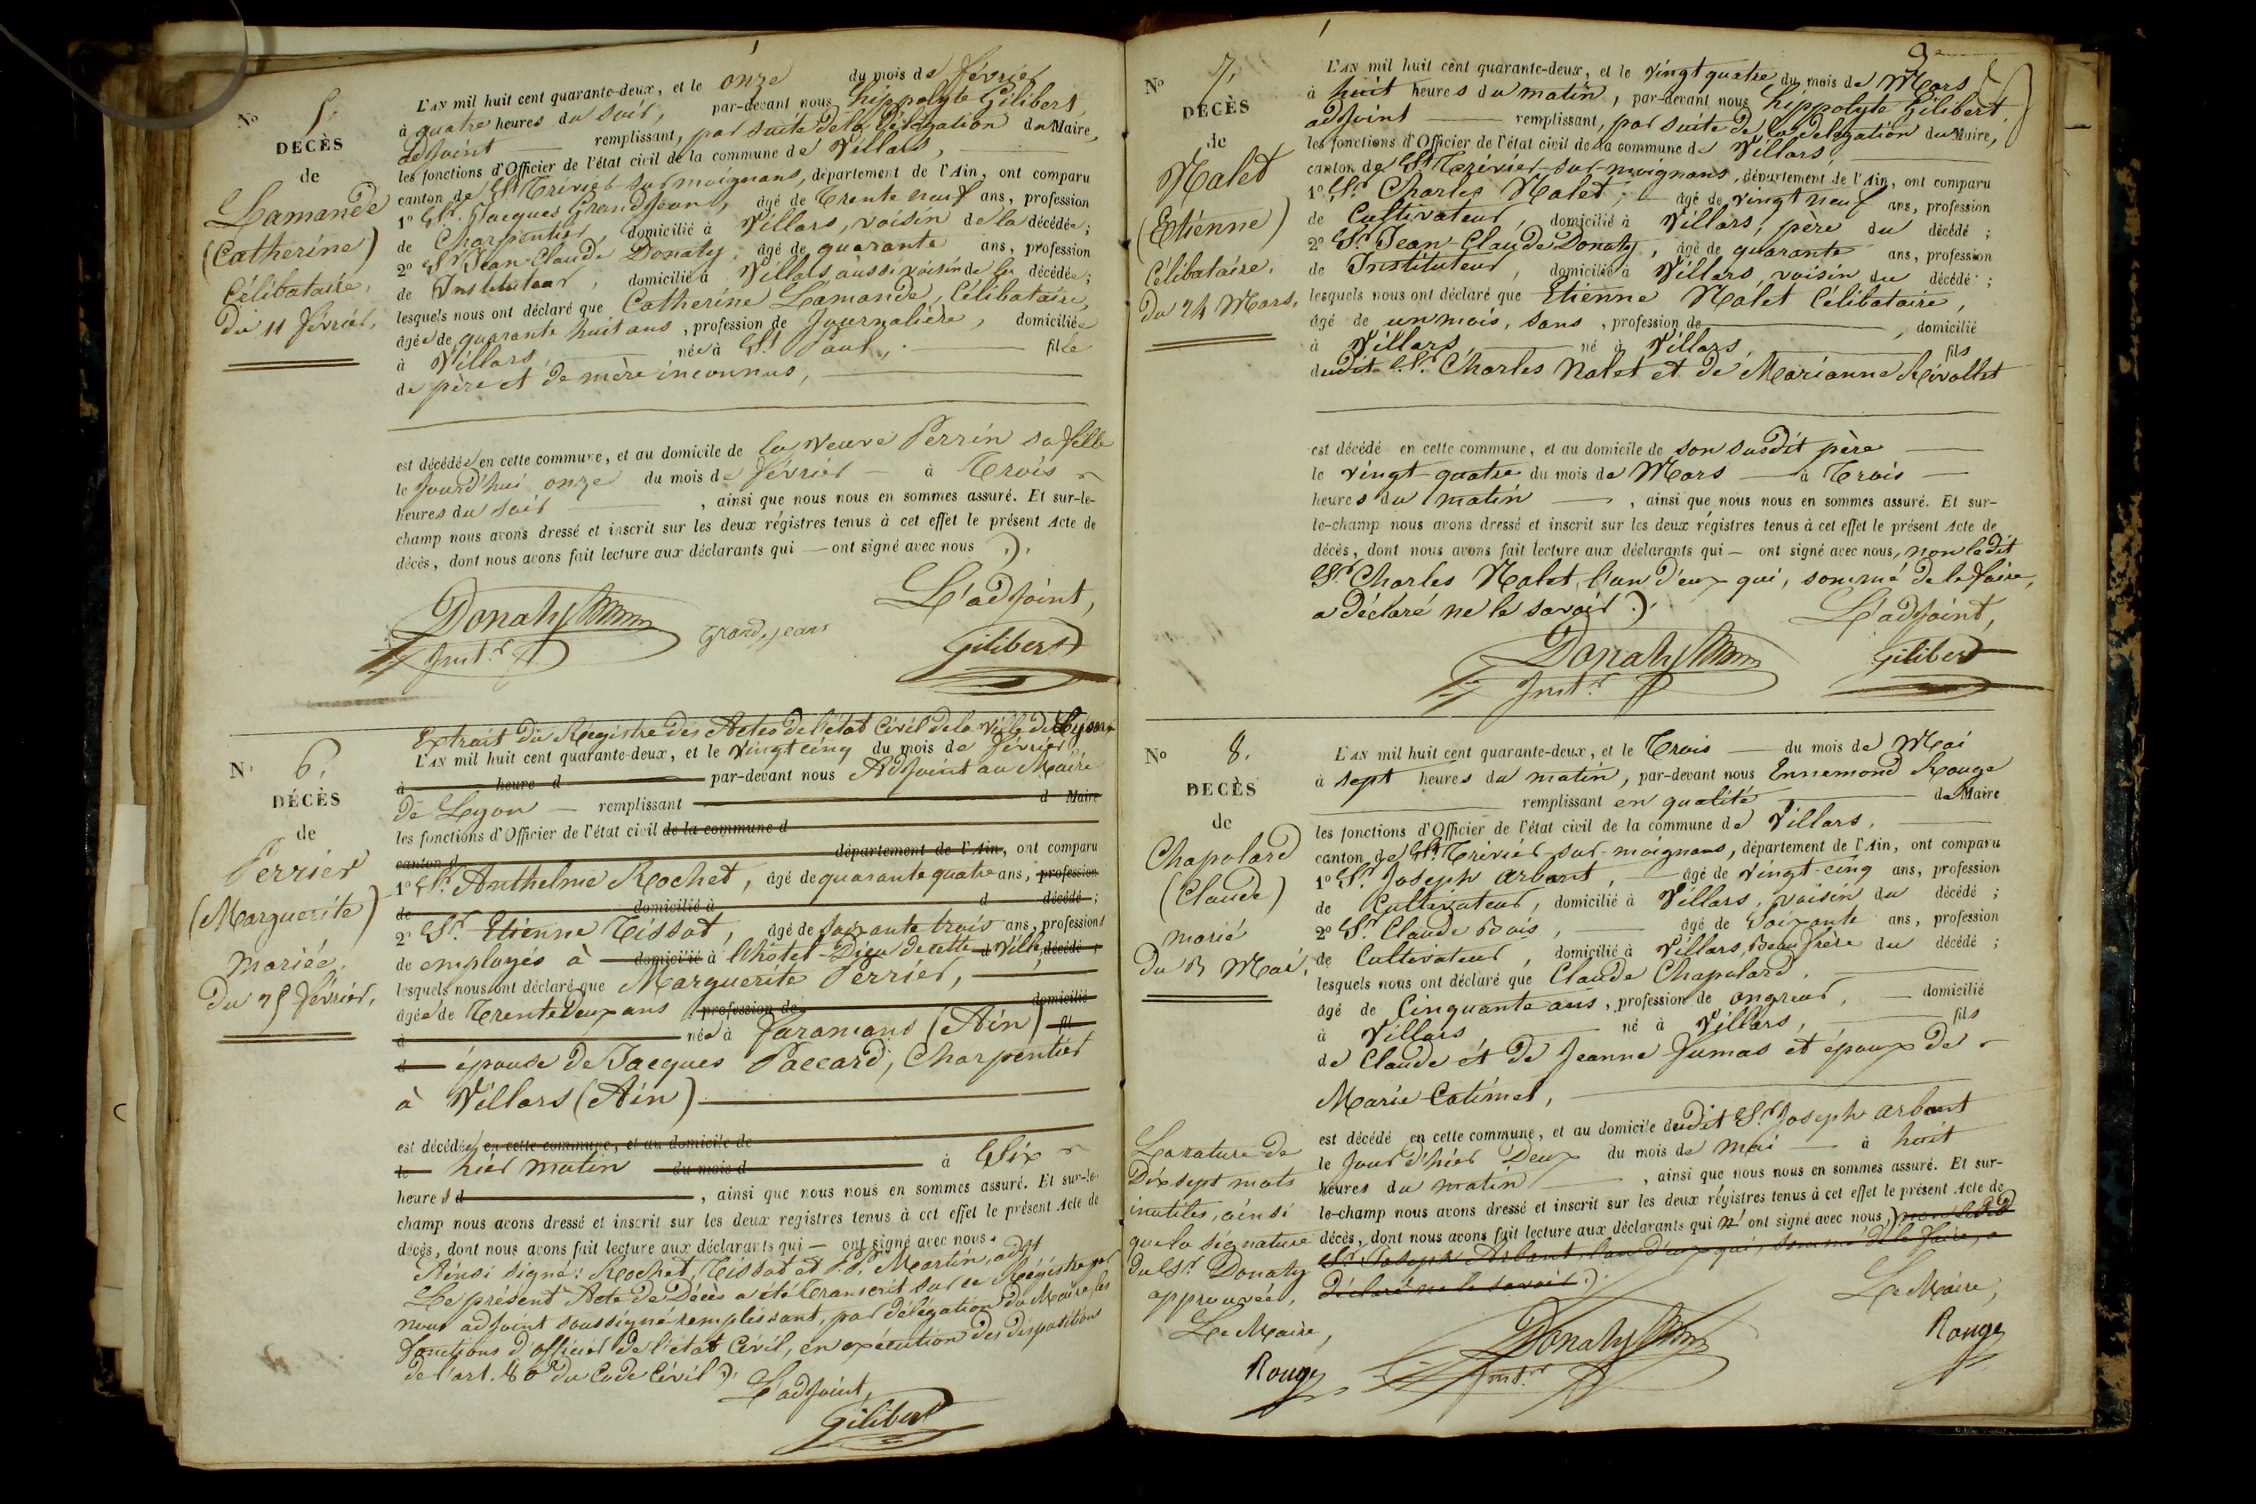 N° 5.
DECÈS
de
Lamande
(Catherine)
Célibataire,
Du 11 février,
L'AN mil huit cent quarante-deux, et le onze du mois de février
à quatre heures du soir, par-devant nous hippolyte Gilibert,
adjoint remplissant, par suite de la délégation du Maire,
les fonctions d'Officier de l'état civil de la commune de Villars,
canton de St Trivier-sur-moignans, département de l'Ain, ont comparu
1° Sr. Jacques Grandjean, âgé de Trente neuf ans, profession
de Charpentier, domicilié à Villars, voisin de la décédée;
2° Sr Jean-Claude Donaty, âgé de quarante ans, profession
de Instituteur, domicilié à Villars aussi voisin de la décédée;
lesquels nous ont déclaré que Catherine Lamande, Célibataire,
âgée de quarante huit ans, profession de Journalière, domiciliée
à Villars, née à St Paul, fille
de père et de mère inconnus,
est décédée en cette commune, et au domicile de la veuve Perrin sa fille
le jourd'hui onze du mois de février à Trois
heures du soir, ainsi que nous nous en sommes assuré. Et sur-le-
champ nous avons dressé et inscrit sur les deux régistres tenus à cet effet le présent Acte de
décès, dont nous avons fait lecture aux déclarants qui — ont signé avec nous
L'adjoint,
Donaty Grandjean Gilibert
Instr
N° 6.
DÉCÈS
de
Perrier
(Marguerite)
Mariée,
Du 25 février,
Extrait du Régistre des Actes de l'état Civil de la Ville de Lyon
L'AN mil huit cent quarante-deux, et le vingt cinq du mois de février
à heure d par-devant nous Adjoint au Maire
de Lyon — remplissant d Maire
les fonctions d'Officier de l'état civil de la commune d
canton d département de l'Ain, ont comparu
1° Sr. Anthelme Rochet, âgé de quarante quatre ans, profession
de domicilié à d décédé;
2° Sr. Etienne Tissot, âgé de soixante trois ans, profession
de employés à domicilié à l'hôtel-Dieu de cette d Ville, décédé;
lesquels nous ont déclaré que Marguerite Perrier,
âgée de Trente Deux ans profession de domicilié
à née à Faramans (Ain) fil
d épouse de Jacques Paccard, Charpentier
à Villars (Ain)
est décédée, en cette commune, et au domicile de
le hier matin du mois d à Six
heures d, ainsi que nous nous en sommes assuré. Et sur-le-
champ nous avons dressé et inscrit sur les deux registres tenus à cet effet le présent Acte de
décès, dont nous avons fait lecture aux déclarants qui — ont signé avec nous.
Ainsi signé: Rochet, Tissot et Martin, adjt
Le présent Acte de Décès a été Transcrit sur ce Régistre par
nous adjoint soussigné remplissant, par délégation du Maire, les
fonctions d'officier de l'état Civil, en exécution des dispositions
de l'art. 80 du Code Civil.
L'adjoint,
Gilibert
N° 7.
DÉCÈS
de
Malet
(Etienne)
Célibataire,
Du 24 Mars,
L'AN mil huit cent quarante-deux, et le vingt quatre du mois de Mars
à huit heures du matin, par-devant nous hippolyte Gilibert,
adjoint remplissant, par suite de la délégation du Maire,
les fonctions d'Officier de l'état civil de la commune de Villars
canton de St Trivier-sur-moignans, département de l'Ain, ont comparu
1° Sr. Charles Malet, âgé de vingt neuf ans, profession
de Cultivateur, domicilié à Villars, père du décédé;
2° Sr. Jean-Claude Donaty, âgé de quarante ans, profession
de Instituteur, domicilié à Villars, voisin du décédé;
lesquels nous ont déclaré que Etienne Malet Célibataire,
âgé de un mois, sans, profession de, domicilié
à Villars, né à Villars, fils
dudit Sr. Charles Malet et de Marianne Rivollet
est décédé en cette commune, et au domicile de son susdit père
le vingt-quatre du mois de Mars à Trois
heures du matin, ainsi que nous nous en sommes assuré. Et sur-
le-champ nous avons dressé et inscrit sur les deux régistres tenus à cet effet le présent Acte de
décès, dont nous avons fait lecture aux déclarants qui — ont signé avec nous, non ledit
Sr. Charles Malet, l'un d'eux qui, sommé de le faire,
a déclaré ne le savoir.
L'adjoint,
Donaty Gilibert
Instr
N° 8.
DECÈS
de
Chapolard
(Claude)
marié
Du 3 Mai,
L'AN mil huit cent quarante-deux, et le Trois du mois de Mai
à sept heures du matin, par-devant nous Ennemond Rouge
remplissant en qualité de Maire
les fonctions d'Officier de l'état civil de la commune de Villars,
canton de St Trivier-sur-moignans, département de l'Ain, ont comparu
1° Sr. Joseph Arbant, âgé de vingt-cinq ans, profession
de Cultivateur, domicilié à Villars, voisin du décédé;
2° Sr. Claude Bois, âgé de Soixante ans, profession
de Cultivateur, domicilié à Villars, Beau frère du décédé;
lesquels nous ont déclaré que Claude Chapolard,
âgé de Cinquante ans, profession de ongreur, domicilié
à Villars né à Villars, fils
de Claude et de Jeanne Jumas et époux de
Marie Catimel,
est décédé en cette commune, et au domicile dudit Sr. Joseph Arbant
le Jour d'hier Deux du mois de mai à huit
heures du matin, ainsi que nous nous en sommes assuré. Et sur-
le-champ nous avons dressé et inscrit sur les deux régistres tenus à cet effet le présent Acte de
décès, dont nous avons fait lecture aux déclarants qui n'ont signé avec nous, non ledit
Sr. Joseph Arbant, l'un d'eux qui, sommé de le faire, a
déclaré ne le savoir.
La rature de
Dix sept mots
inutiles, ainsi
que la signature
du Sr. Donaty
approuvée,
Le Maire,
Rouge
Le Maire,
Donaty Rouge
Instr